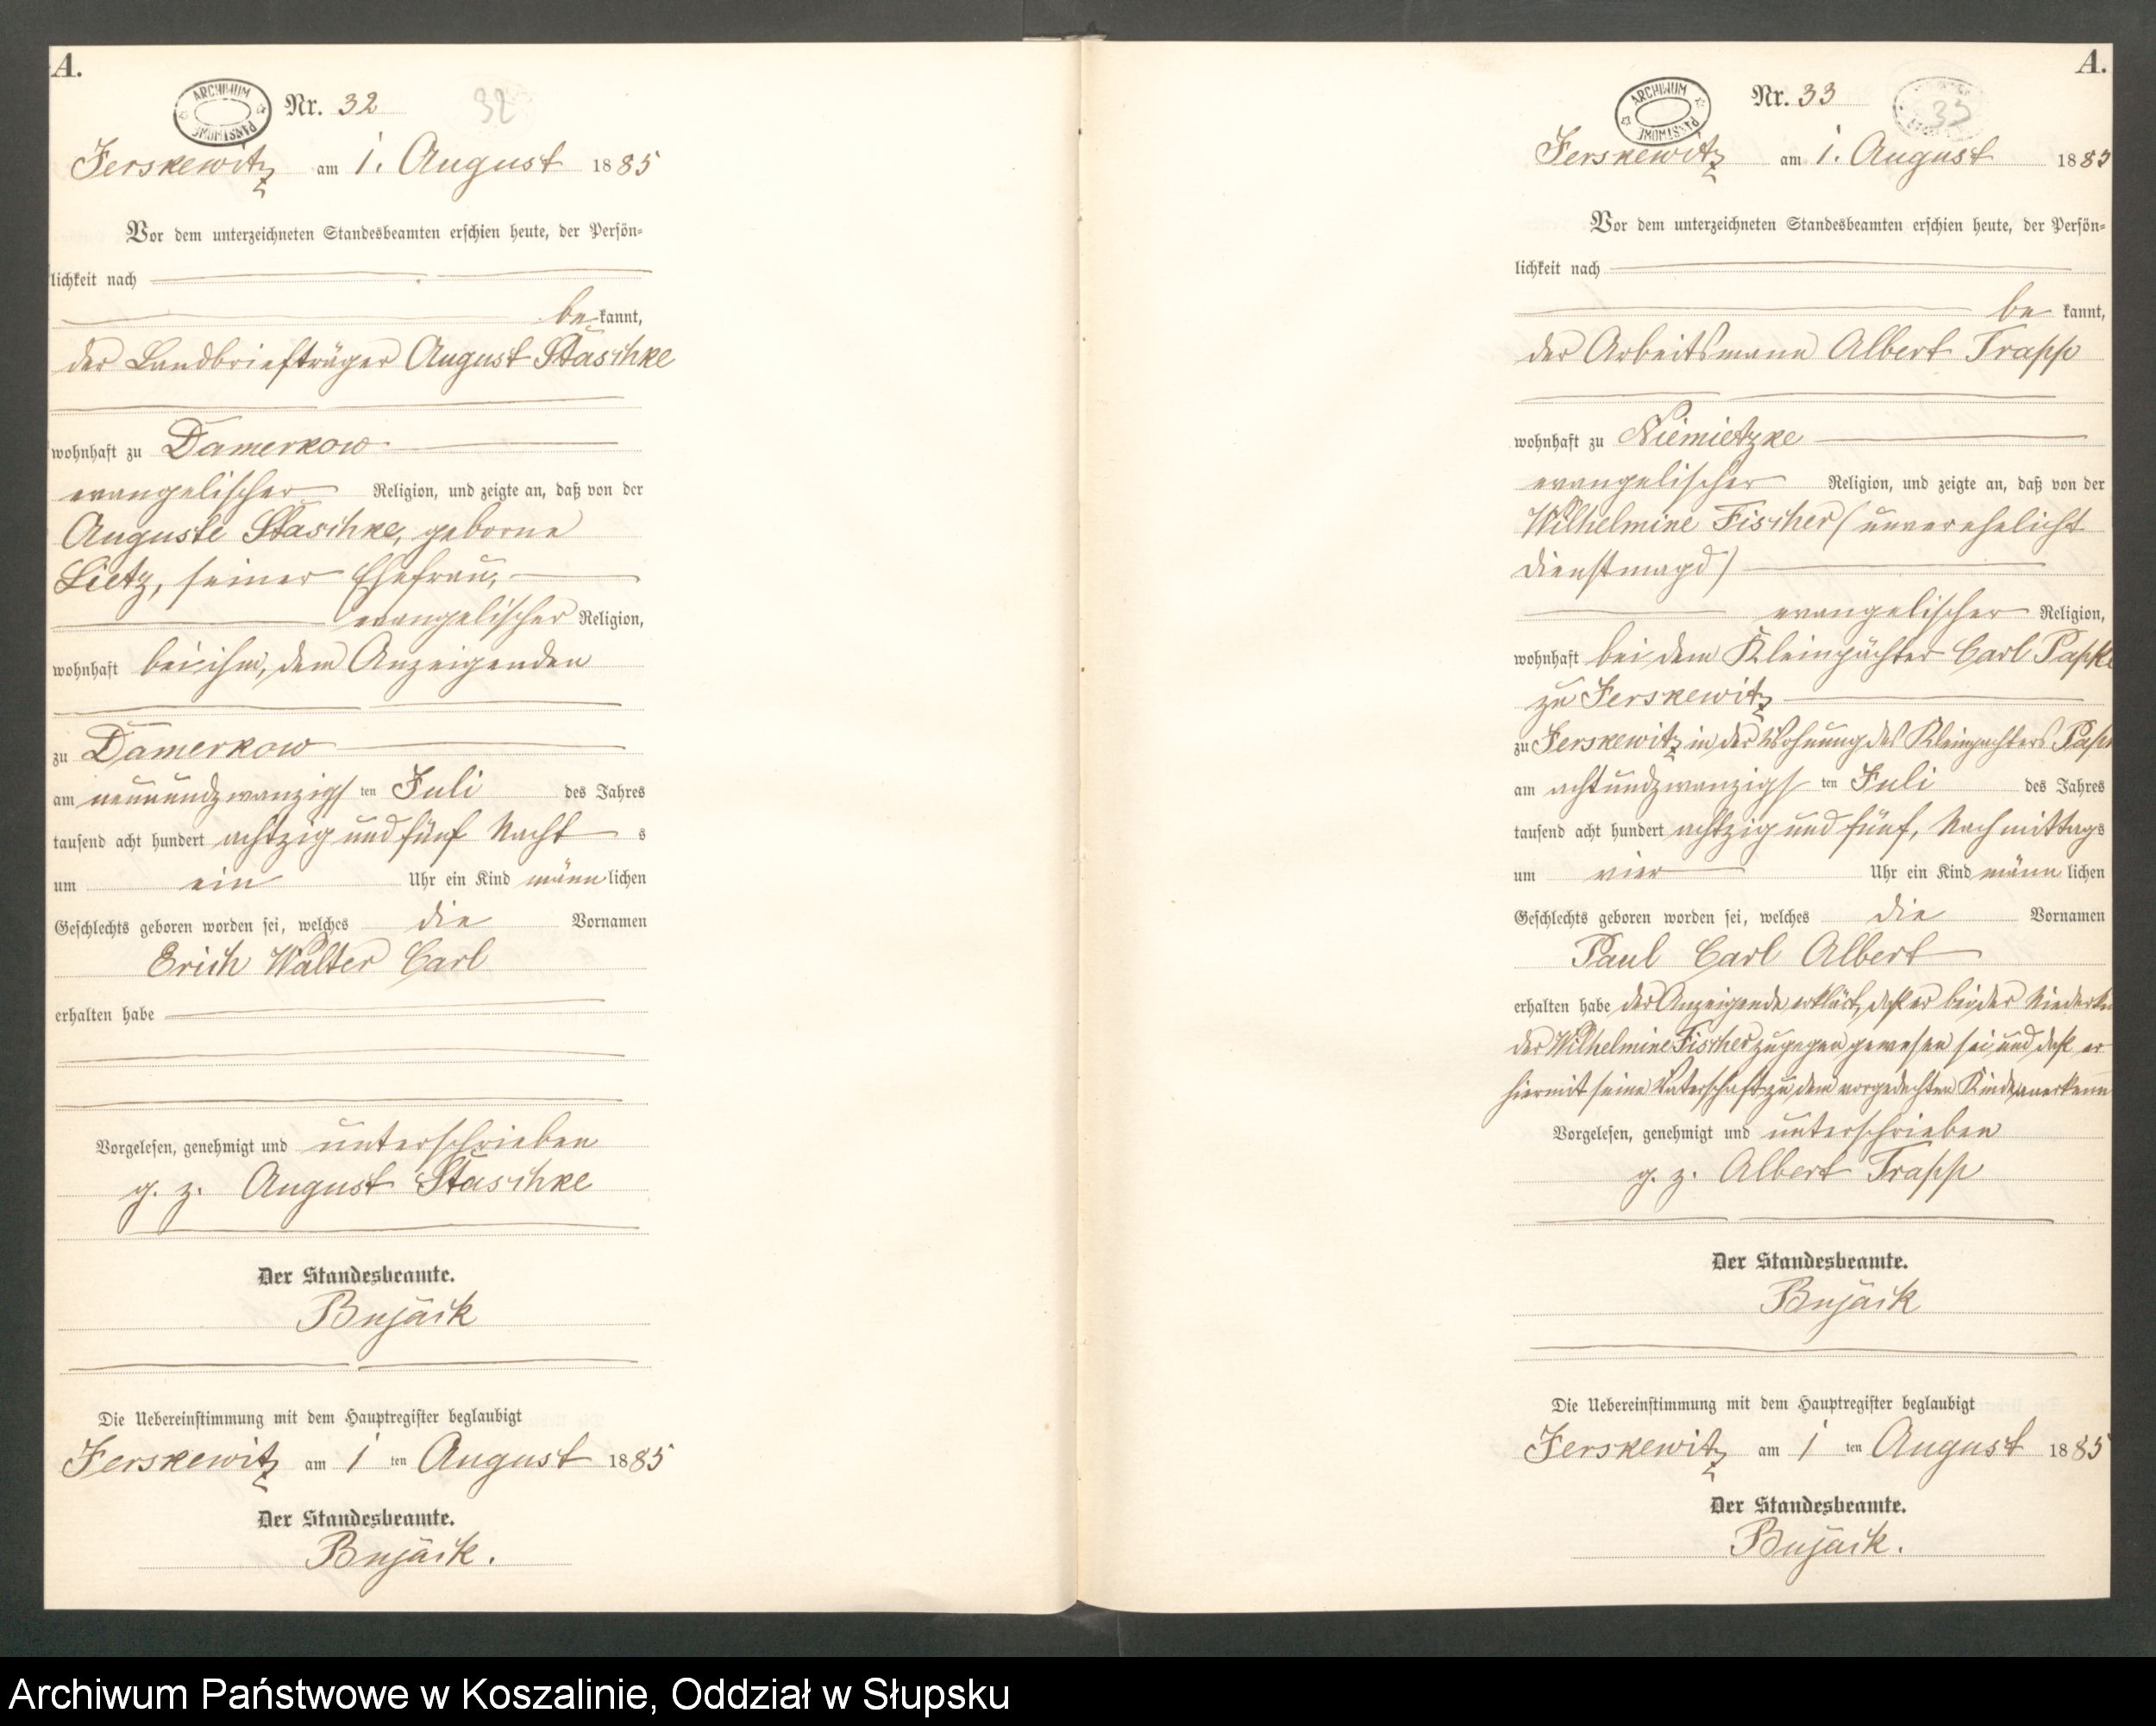 A.
ARCHIWUM PAŃSTWOWE
Nr. 32
32
Jerskewitz am 1. August 1885
Vor dem unterzeichneten Standesbeamten erschien heute, der Persön-
lichkeit nach
bekannt,
der Landbriefträger August Staschke
wohnhaft zu Damerkow
evangelischer Religion, und zeigte an, daß von der
Auguste Staschke, geborne
Lietz, seiner Ehefrau,
evangelischer Religion,
wohnhaft bei ihm, dem Anzeigenden
zu Damerkow
am neunundzwanzigsten Juli des Jahres
tausend acht hundert achtzig und fünf Nachts
um ein Uhr ein Kind männlichen
Geschlechts geboren worden sei, welches die Vornamen
Erich Walter Carl
erhalten habe
Vorgelesen, genehmigt und unterschrieben
g. z. August Staschke
Der Standesbeamte.
Bujack
Die Uebereinstimmung mit dem Hauptregister beglaubigt
Jerskewitz am 1 ten August 1885
Der Standesbeamte.
Bujack.
A.
ARCHIWUM PAŃSTWOWE
Nr. 33
33
Jerskewitz am 1. August 1885
Vor dem unterzeichneten Standesbeamten erschien heute, der Persön-
lichkeit nach
bekannt,
der Arbeitsmann Albert Trapp
wohnhaft zu Niemietzke
evangelischer Religion, und zeigte an, daß von der
Wilhelmine Fischer (unverehelicht
Dienstmagd)
evangelischer Religion,
wohnhaft bei dem Kleinpächter Carl Papke
zu Jerskewitz
zu Jerskewitz in der Wohnung des Kleinpächters Pap
am achtundzwanzigsten Juli des Jahres
tausend acht hundert achtzig und fünf, Nachmittags
um vier Uhr ein Kind männlichen
Geschlechts geboren worden sei, welches die Vornamen
Paul Carl Albert
erhalten habe der Anzeigende erklärt, daß er bei der Niederku
der Wilhelmine Fischer zugegen gewesen sei, und daß er
hiermit seine Vaterschaft zu dem vorgedachten Kinde anerkenn
Vorgelesen, genehmigt und unterschrieben
g. z. Albert Trapp
Der Standesbeamte.
Bujack
Die Uebereinstimmung mit dem Hauptregister beglaubigt
Jerskewitz am 1 ten August 1885
Der Standesbeamte.
Bujack.
Archiwum Państwowe w Koszalinie, Oddział w Słupsku